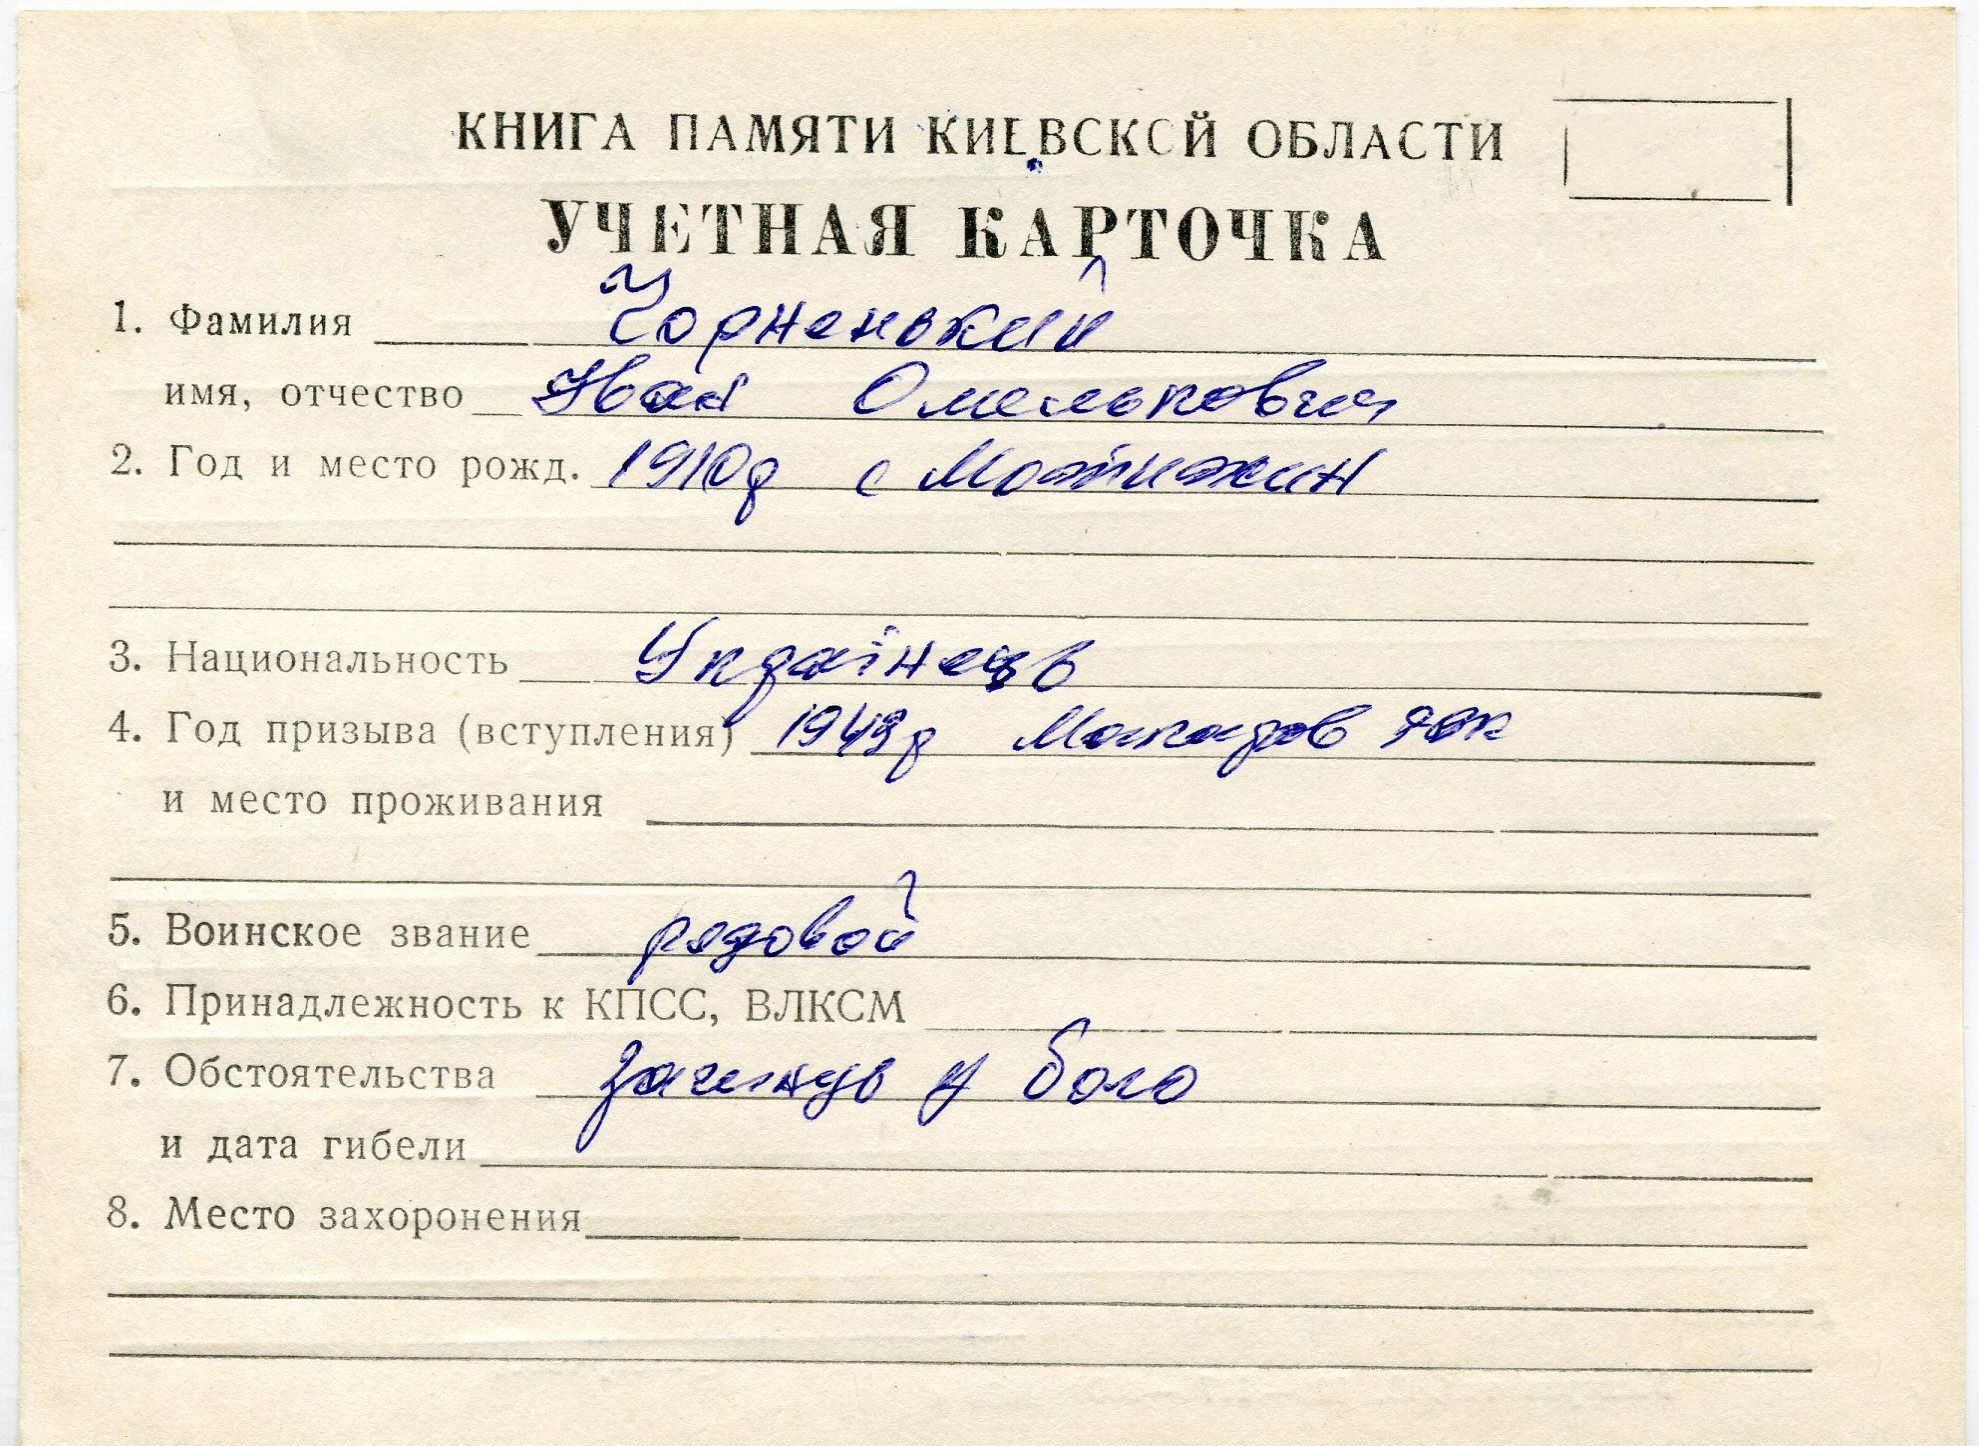 КНИГА ПАМЯТИ КИЕВСКОЙ ОБЛАСТИ
УЧЕТНАЯ КАРТОЧКА
1. Фамилия Чорненький
имя, отчество Іван Омелькович
2. Год и место рожд. 1910р с Мотижин
3. Национальность Українець
4. Год призыва (вступления) 1943р Макаров
и место проживания
5. Воинское звание рядовой
6. Принадлежность к КПСС, ВЛКСМ
7. Обстоятельства загинув у бою
и дата гибели
8. Место захоронения